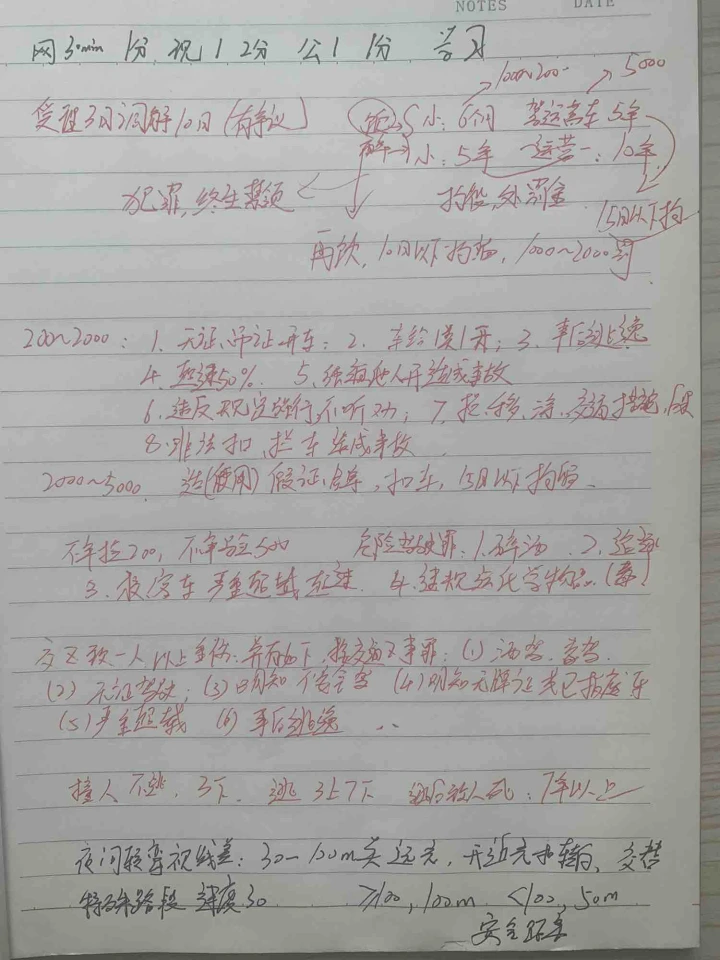 NOTES DATE
网30min 1分,视1 2分 公1 1分 学习
1000~2000 5000
受理3日,调解10日(有争议) 饮→ 小:6个月 驾运营车5年
醉→ 小:5年 运营:10年
犯罪,终生禁领 拘役,处罚金 15日以下拘
再饮,10日以下拘留,1000~2000罚
200~2000:1.无证、吊证开车;2.车给1类1开;3.事后逃逸
4.超速50% 5.强迫他人开造成事故
6.违反规定强行不听劝;7.损、移、涂、交通措施
8.非法扣、拦车造成事故
2000~5000 造(使用)假证,扣车,15日以下拘留
不年检200,不年 500 危险驾驶罪:1.醉驾 2.追
3.校客车严重超载超速 4.违规运化学物品
交 致一人以上重伤,并有如下, 罪:(1)酒驾、毒驾
(2)无证驾驶;(3)明知不安全驾 (4)明知无牌证或已报废车
(5)严重超载 (6)事后逃逸 ...
撞人不逃,3下 逃3上7下 逃后致人死:7年以上
夜间转弯视线差:30-100m关远光,开近光和转向,交替
特殊路段 速度30 ≥100,100m <100,50m
安全距离